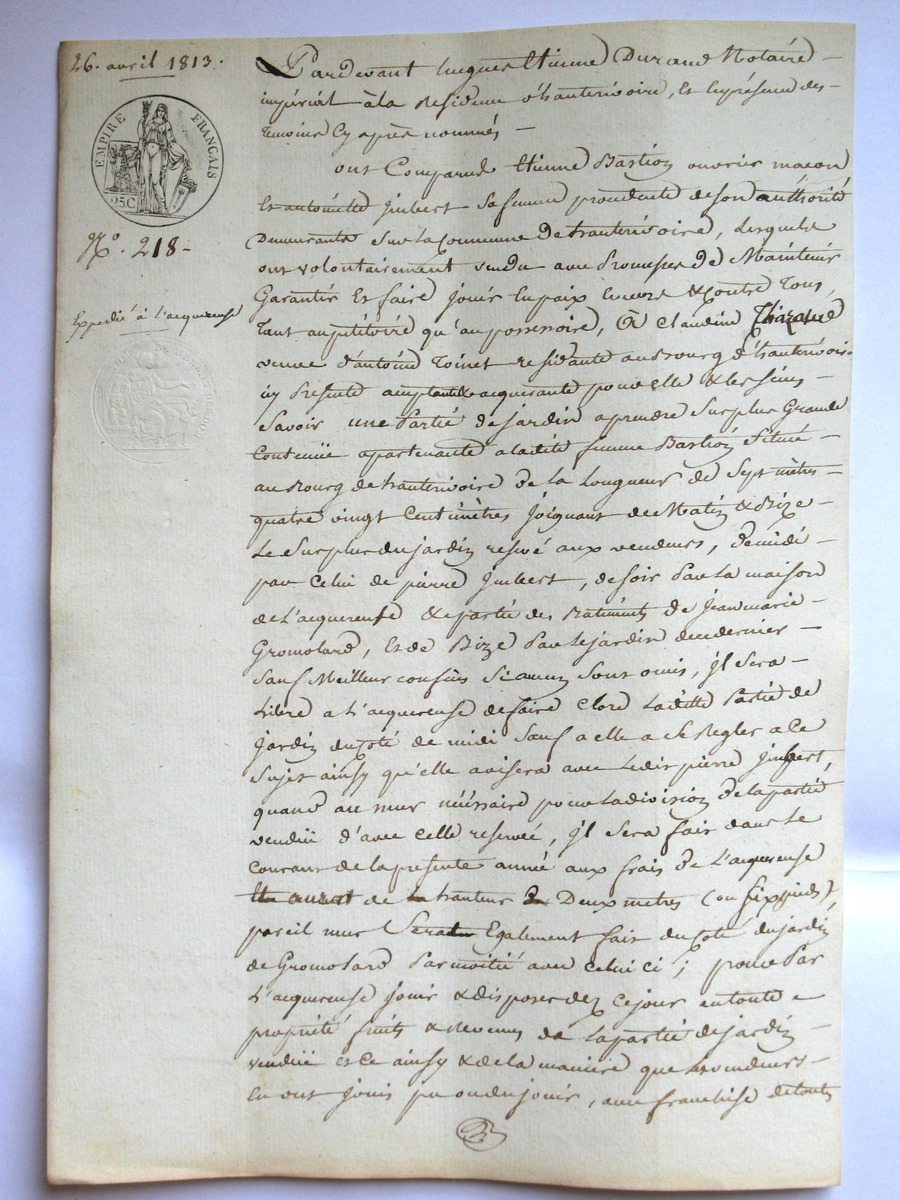 26. avril 1813.
EMPIRE FRANÇAIS
25C
N.º 218-
Expedié à l'acquereuse
Pardevant hugues Etienne Durand Notaire
imperial à la Residence d'hauterivoire, Et En présence des
temoins Cy après nommés
ont Comparus Etienne Bastion ouvrier maçon
Et antoinette Jmbert Sa femme procedente de son authorité
Demeurants Sur la Commune De hauterivoire, Lesquels
ont volontairement vendu avec Promesse De Maintenir
Garantir Et faire jouir En paix Envers & Contre Tous,
tant au petitoire qu'au possessoire, à Claudine
veuve d'antoine Toinet residante au Bourg d'hauterivoire
icy Presente acceptante & acquerante pour elle & les siens
Savoir une Partie de jardin a prendre Sur plus Grande
Contenüe apartenante a ladite femme Bastion Située
au Bourg de hauterivoire De la Longueur de Sept mètres
quatre vingt Centimètres Joignant de Matin & Bize
Le Surplus du jardin reservé aux vendeurs, De midi
par Celui de pierre Jmbert, de soir Par La maison
de L'acquereuse & partie des Batiments de Jean marie
Gromolard, Et de Bize Par Le jardin de ce dernier
Sauf Meilleur confins Si aucuns Sont omis, jl Sera
Libre a L'acquereuse de faire Clore Ladite Partie de
jardin du Coté de midi Sauf a elle a Se Regler a Ce
Sujet ainsy qu'elle avisera avec Ledit pierre Jmbert,
quand au mur nécéssaire pour La division De la partie
vendüe d'avec celle reservée, jl Sera fait dans Le
Courant de la presente année aux frais De L'acquereuse
de hauteur Deux metres (ou six pieds),
pareil mur Sera Egalement fait du Coté du jardin
de Gromolard Par moitié avec Celui ci; pour Par
L'acquereuse jouir & disposer dez Ce jour en toute
propriété fruits & Revenus de La partie de jardin
vendüe et Ce ainsy & de la maniere que Les vendeurs
En ont jouis pu ou du jouir, avec franchise de touts